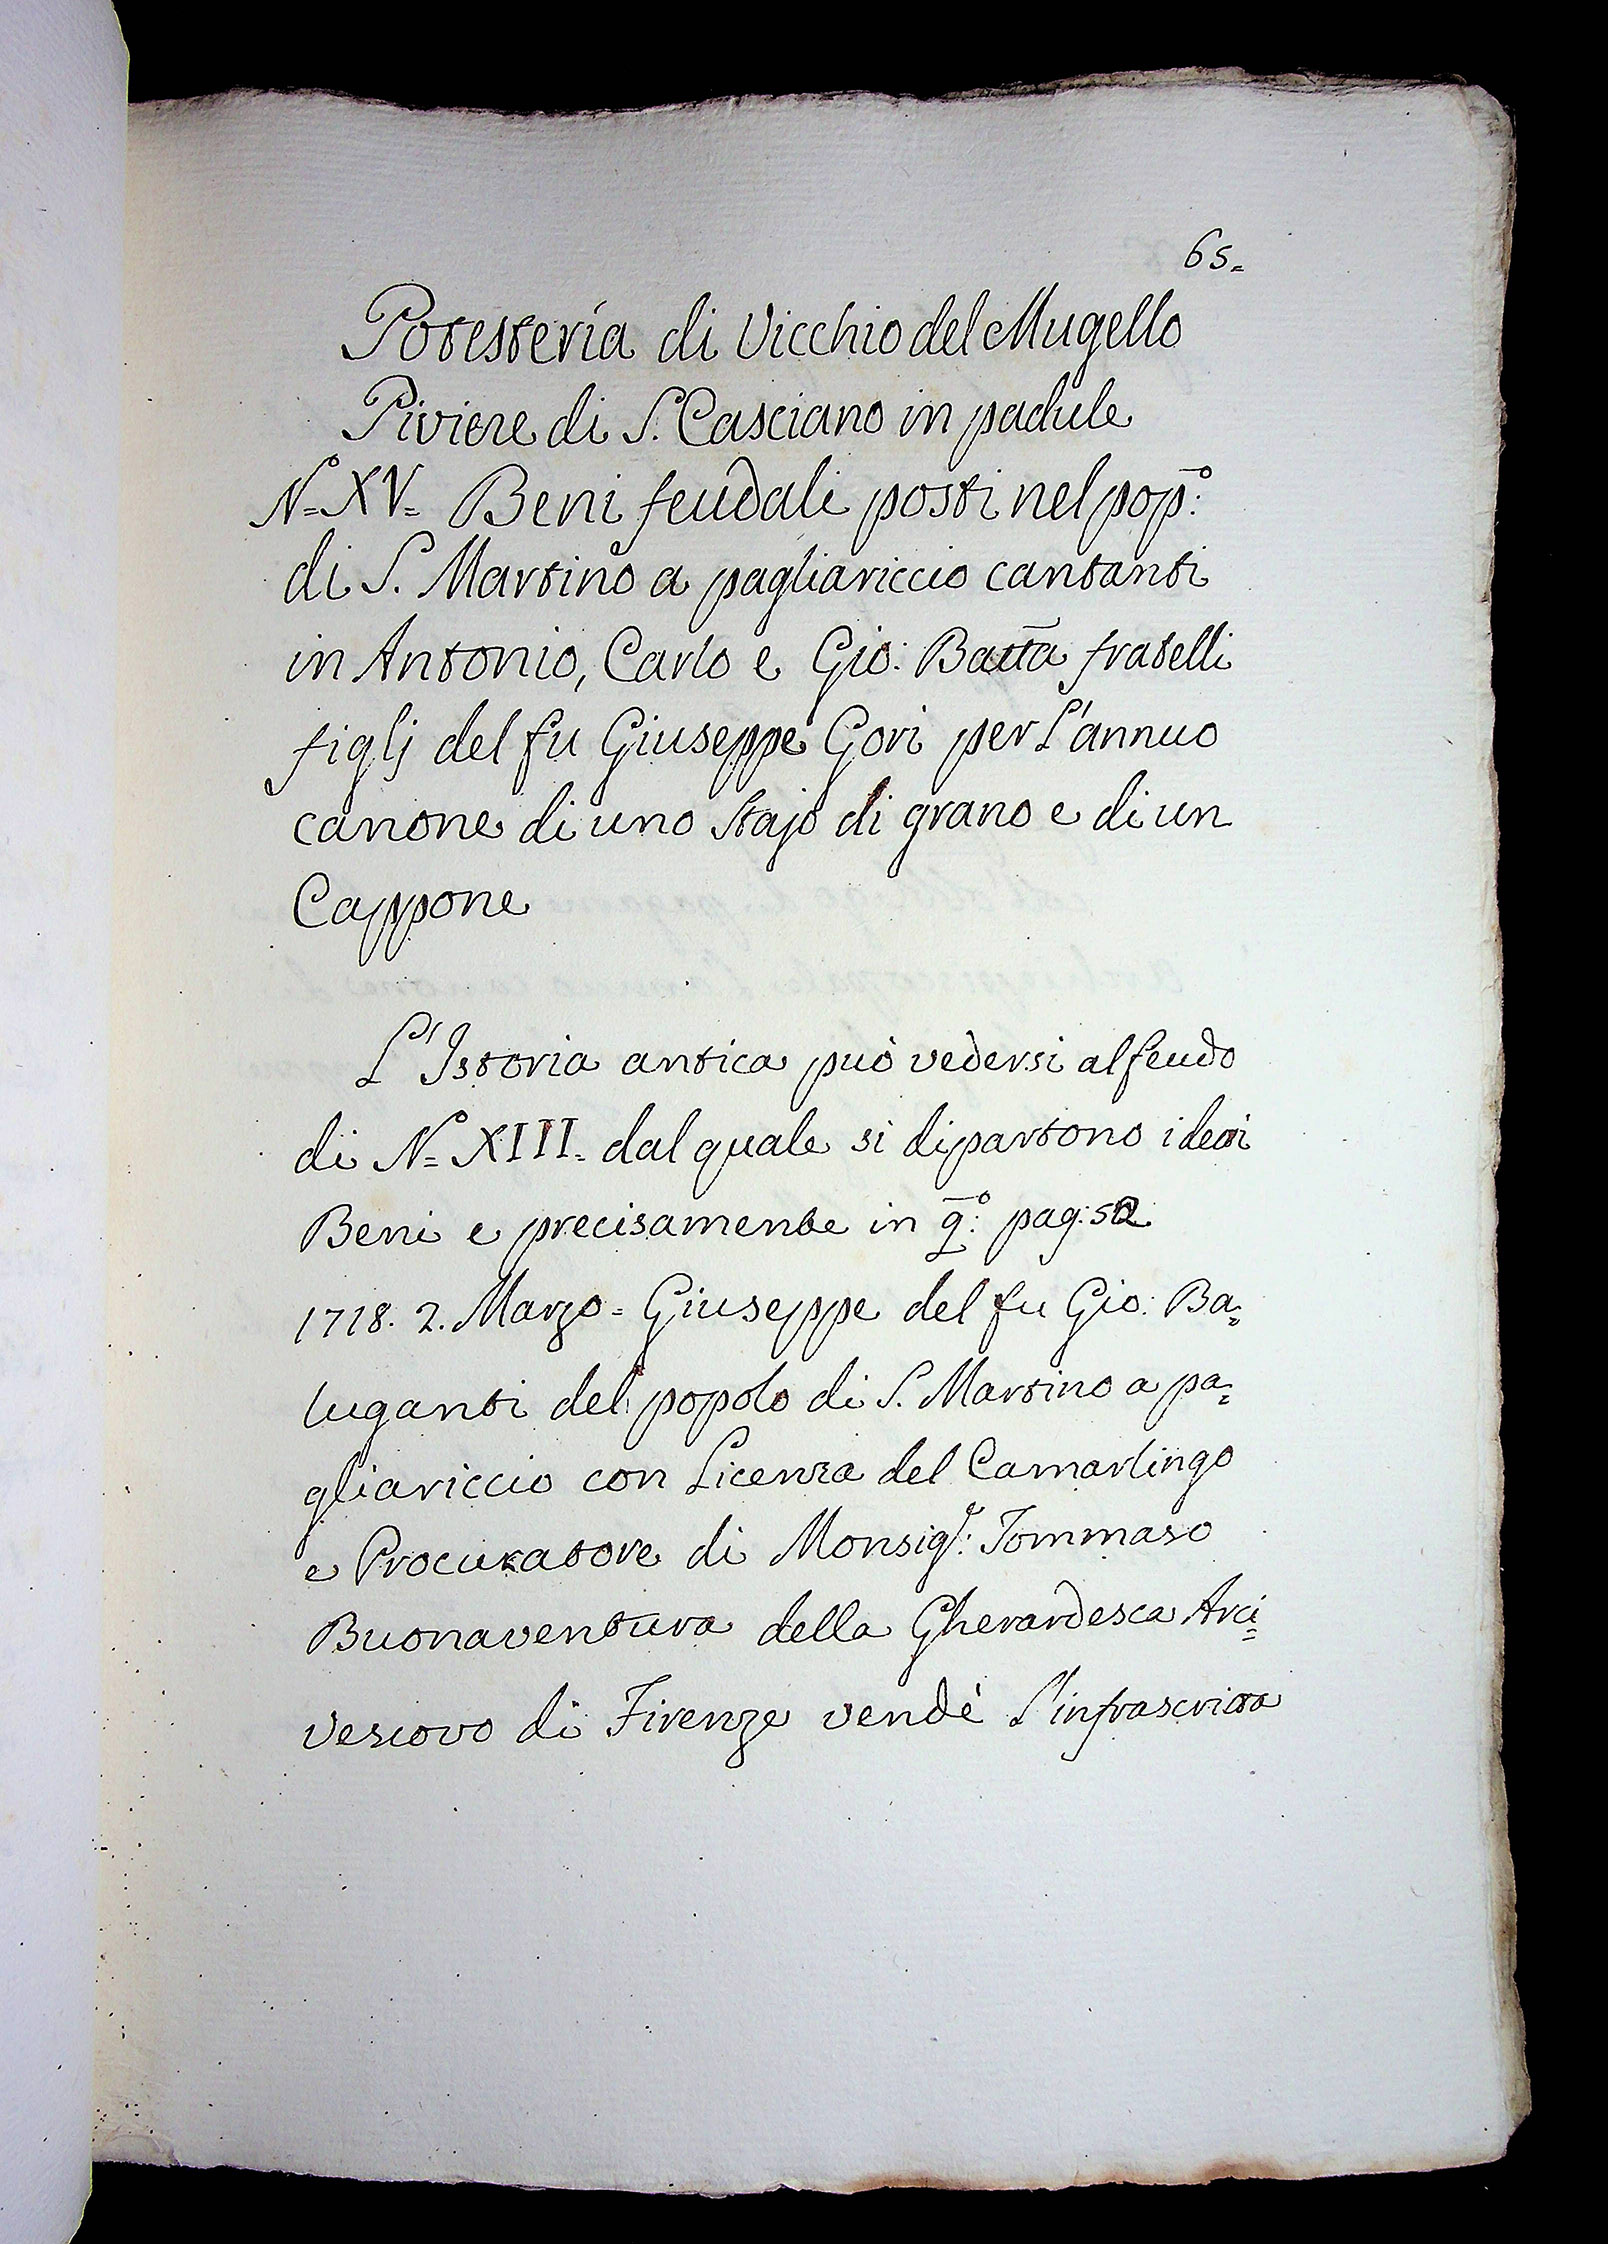 65=
Potesteria di Vicchio del Mugello
Piviere di S. Casciano in padule
N.º XV= Beni feudali posti nel pop:º
di S. Martino a pagliariccio cantanti
in Antonio, Carlo e Gio: Batta fratelli
figlj del fu Giuseppe Gori per L'annuo
canone di uno Stajo di grano e di un
Cappone
L'Istoria antica può vedersi al feudo
di N.º XIII= dal quale si dipartono i detti
Beni e precisamente in q:º pag: 52
1718. 2. Marzo= Giuseppe del fu Gio: Ba=
luganti del popolo di S. Martino a pa=
gliariccio con Licenza del Camarlingo
e Procuratore di Monsig.r: Tommaso
Buonaventura della Gherardesca Arci=
vescovo di Firenze vendè L'infrascritta